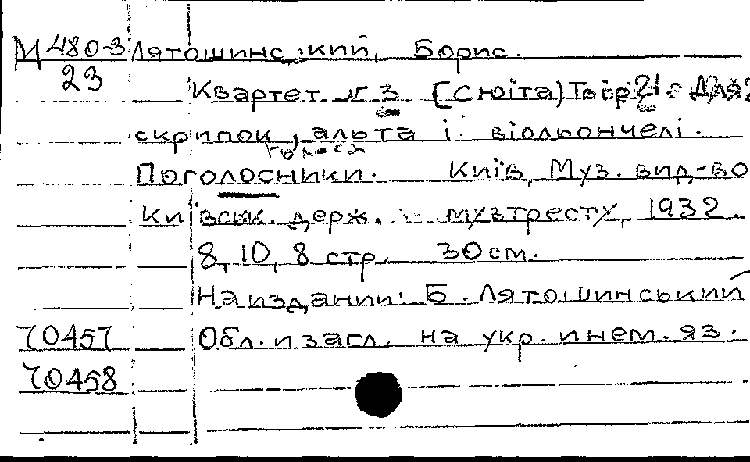 М 480-3 Лятошинський, Борис.
23
Квартет №3 (Сюіта) Твір 21. Для 2
скрипок, альта і віольончелі.
Поголосники. Київ, Муз. вид-во
Київськ. держ. музтресту, 1932
8, 10, 8 стр. 30 см.
На издании: Б. Лятошинський
70457 Обл. и загл. на укр. и нем. яз.
70458